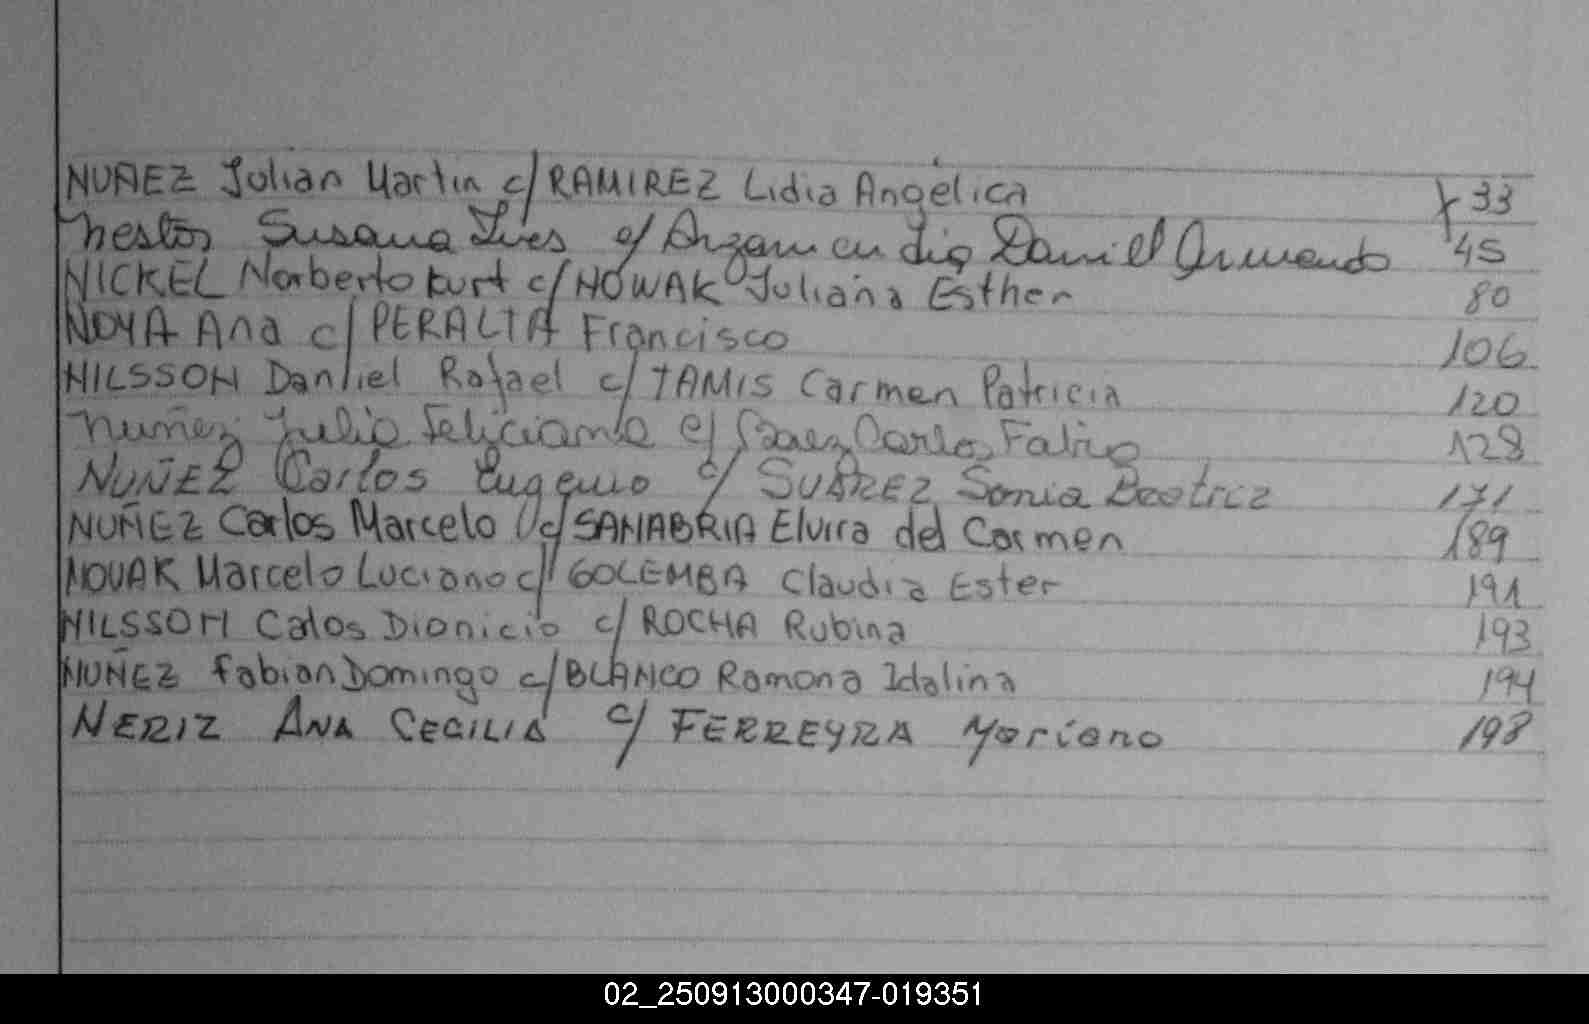 NUÑEZ Julian Martin c/ RAMIREZ Lidia Angélica 33
Nestor Susana Ines c/ Arzamendia Daniel Armando 45
NICKEL Norberto Kurt c/ NOWAK Juliana Esther 80
NOYA Ana c/ PERALTA Francisco 106
NILSSON Daniel Rafael c/ TAMIS Carmen Patricia 120
Nuñez Julia Feliciana c/ Baez Carlos Fabio 128
NUÑEZ Carlos Eugenio c/ SUAREZ Sonia Beatriz 171
NUÑEZ Carlos Marcelo c/ SANABRIA Elvira del Carmen 189
NOVAK Marcelo Luciano c/ GOLEMBA Claudia Ester 191
NILSSON Calos Dionicio c/ ROCHA Rubina 193
NUÑEZ Fabian Domingo c/ BLANCO Ramona Idalina 194
NERIZ ANA CECILIA c/ FERREYRA Mariano 198
02_250913000347-019351